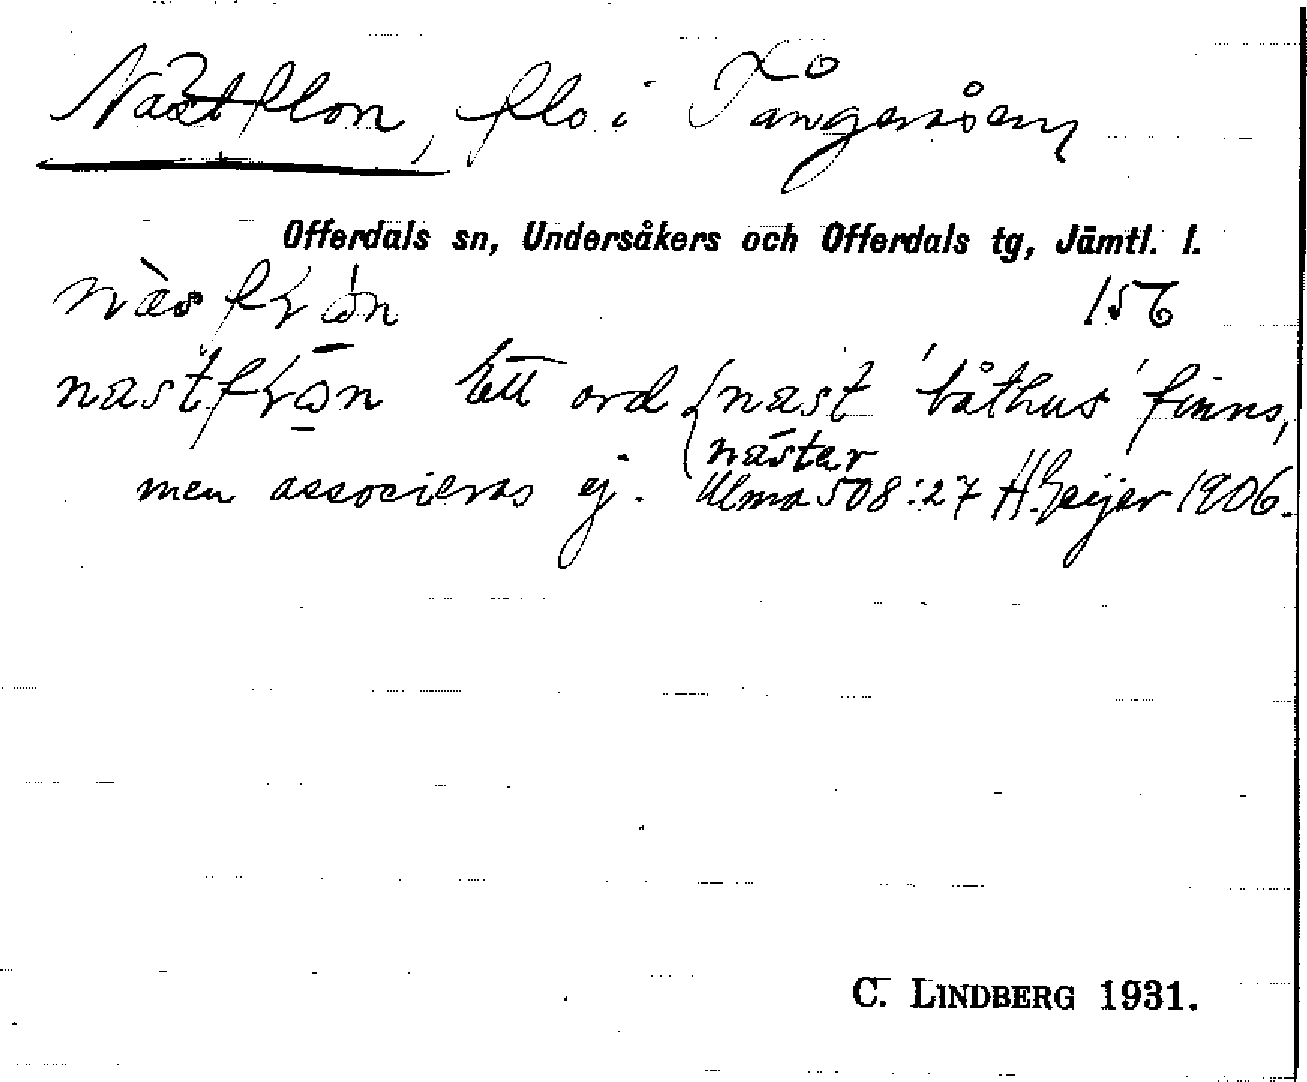 Nastflon, flo i Tångeråsen
Offerdals sn, Undersåkers och Offerdals tg, Jämtl. l.
156
Ett ord nast 'båthus' finns,
näster
men associeras ej. Ulma 508:27 H. Geijer 1906.
C. LINDBERG 1931.